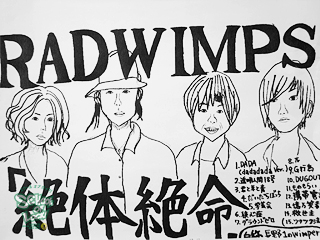 RADWIMPS
「絶体絶命」
1.DADA
(dadadada Ver.)
2.透明人間18号
3.君と羊と青
4.だいだらぼっち
5.学芸会
6.狭心症
7.グラウンドゼロ
8.π
9.G行為
10.DUGOUT
11.ものもらい
12.携帯電話
13.億万笑者
14.救世主